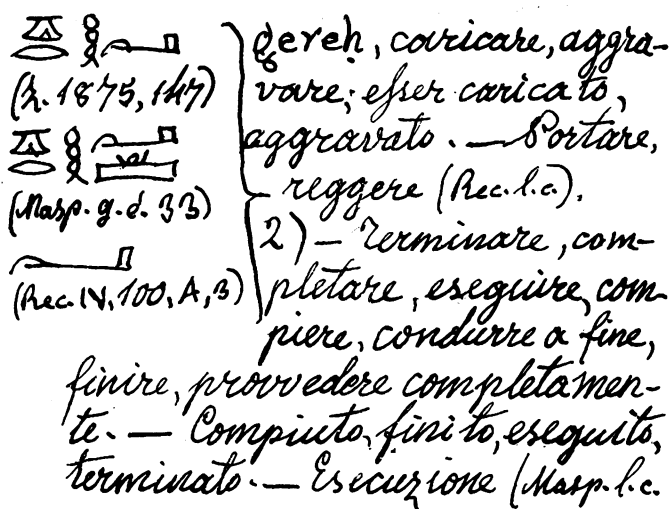 𓎼𓂋𓎛𓂝
(Z. 1875, 147)
𓎼𓂋𓎛𓂝
(Masp. g. d. 33)
𓂝
(Rec. IV, 100, A, 3)
gereh, caricare, aggra-
vare; esser caricato,
aggravato. — Portare,
reggere (Rec. l. c.).
2) — Terminare, com-
pletare, eseguire, com-
piere, condurre a fine,
finire, provvedere completamen-
te. — Compiuto, finito, eseguito,
terminato. — Esecuzione (Masp. l. c.